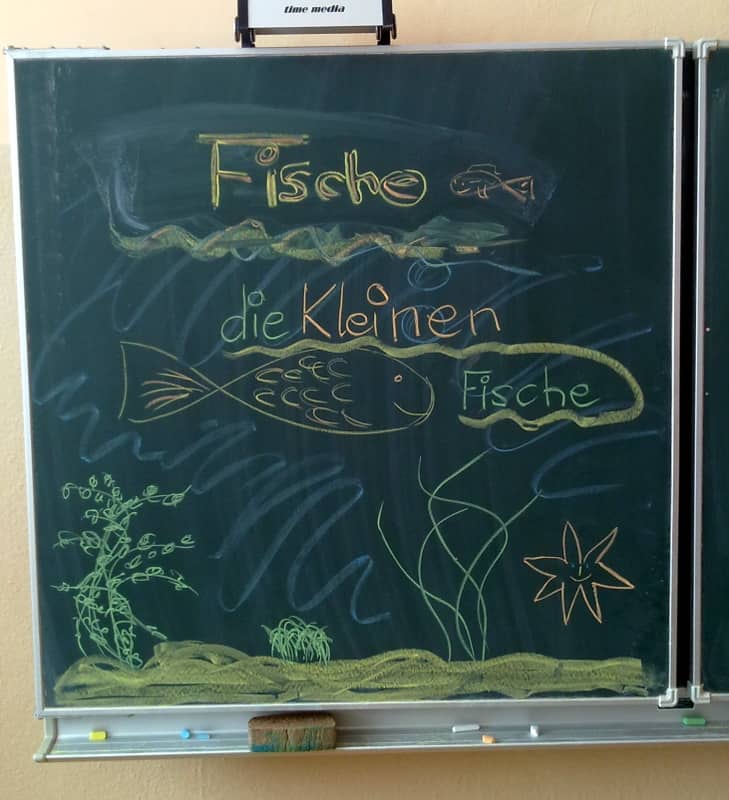 time media
Fische
die Kleinen
Fische